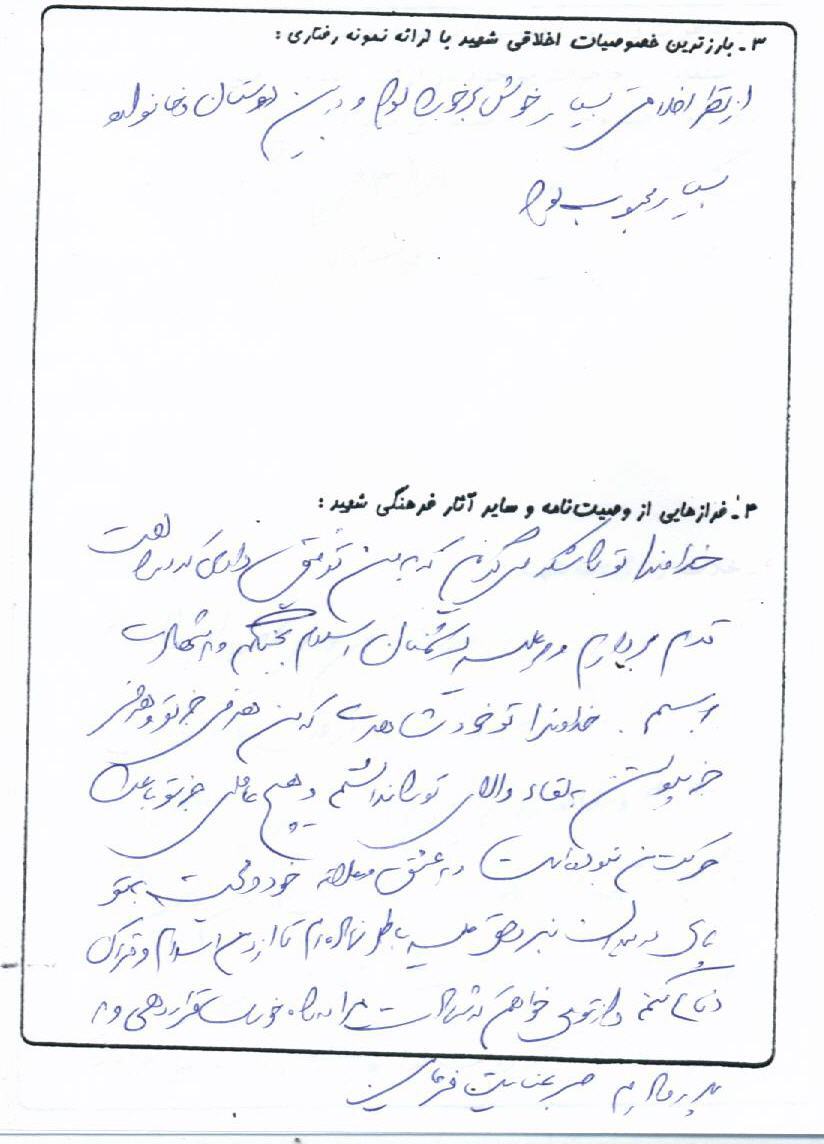 ۳ـ بارزترین خصوصیات اخلاقی شهید با ارائه نمونه رفتاری :
از نظر اخلاقی بسیار خوش برخورد بود و در بین دوستان و خانواده
بسیار محبوب بود
۴ـ فرازهایی از وصیت‌نامه و سایر آثار فرهنگی شهید :
خداوندا تو را شکر می‌گویم که به من توفیق دادی که در راهت
قدم بردارم و بر علیه دشمنان اسلام بجنگم و به شهادت
برسم . خداوندا تو خود شاهدی که من هدفی جز تو و هدفی
جز پیوستن به لقاء والای تو را نداشتم و هیچ عاملی جز تو باعث
حرکت من نبوده است و به عشق و علاقه خود و محبت به تو
پای در میدان نبرد حق علیه باطل نهاده‌ام تا از دین اسلام و قرآن
دفاع کنم و از تو می‌خواهم که شهادت مرا در راه خودت قرار دهی و به
پدر و مادرم صبر عنایت فرمایی